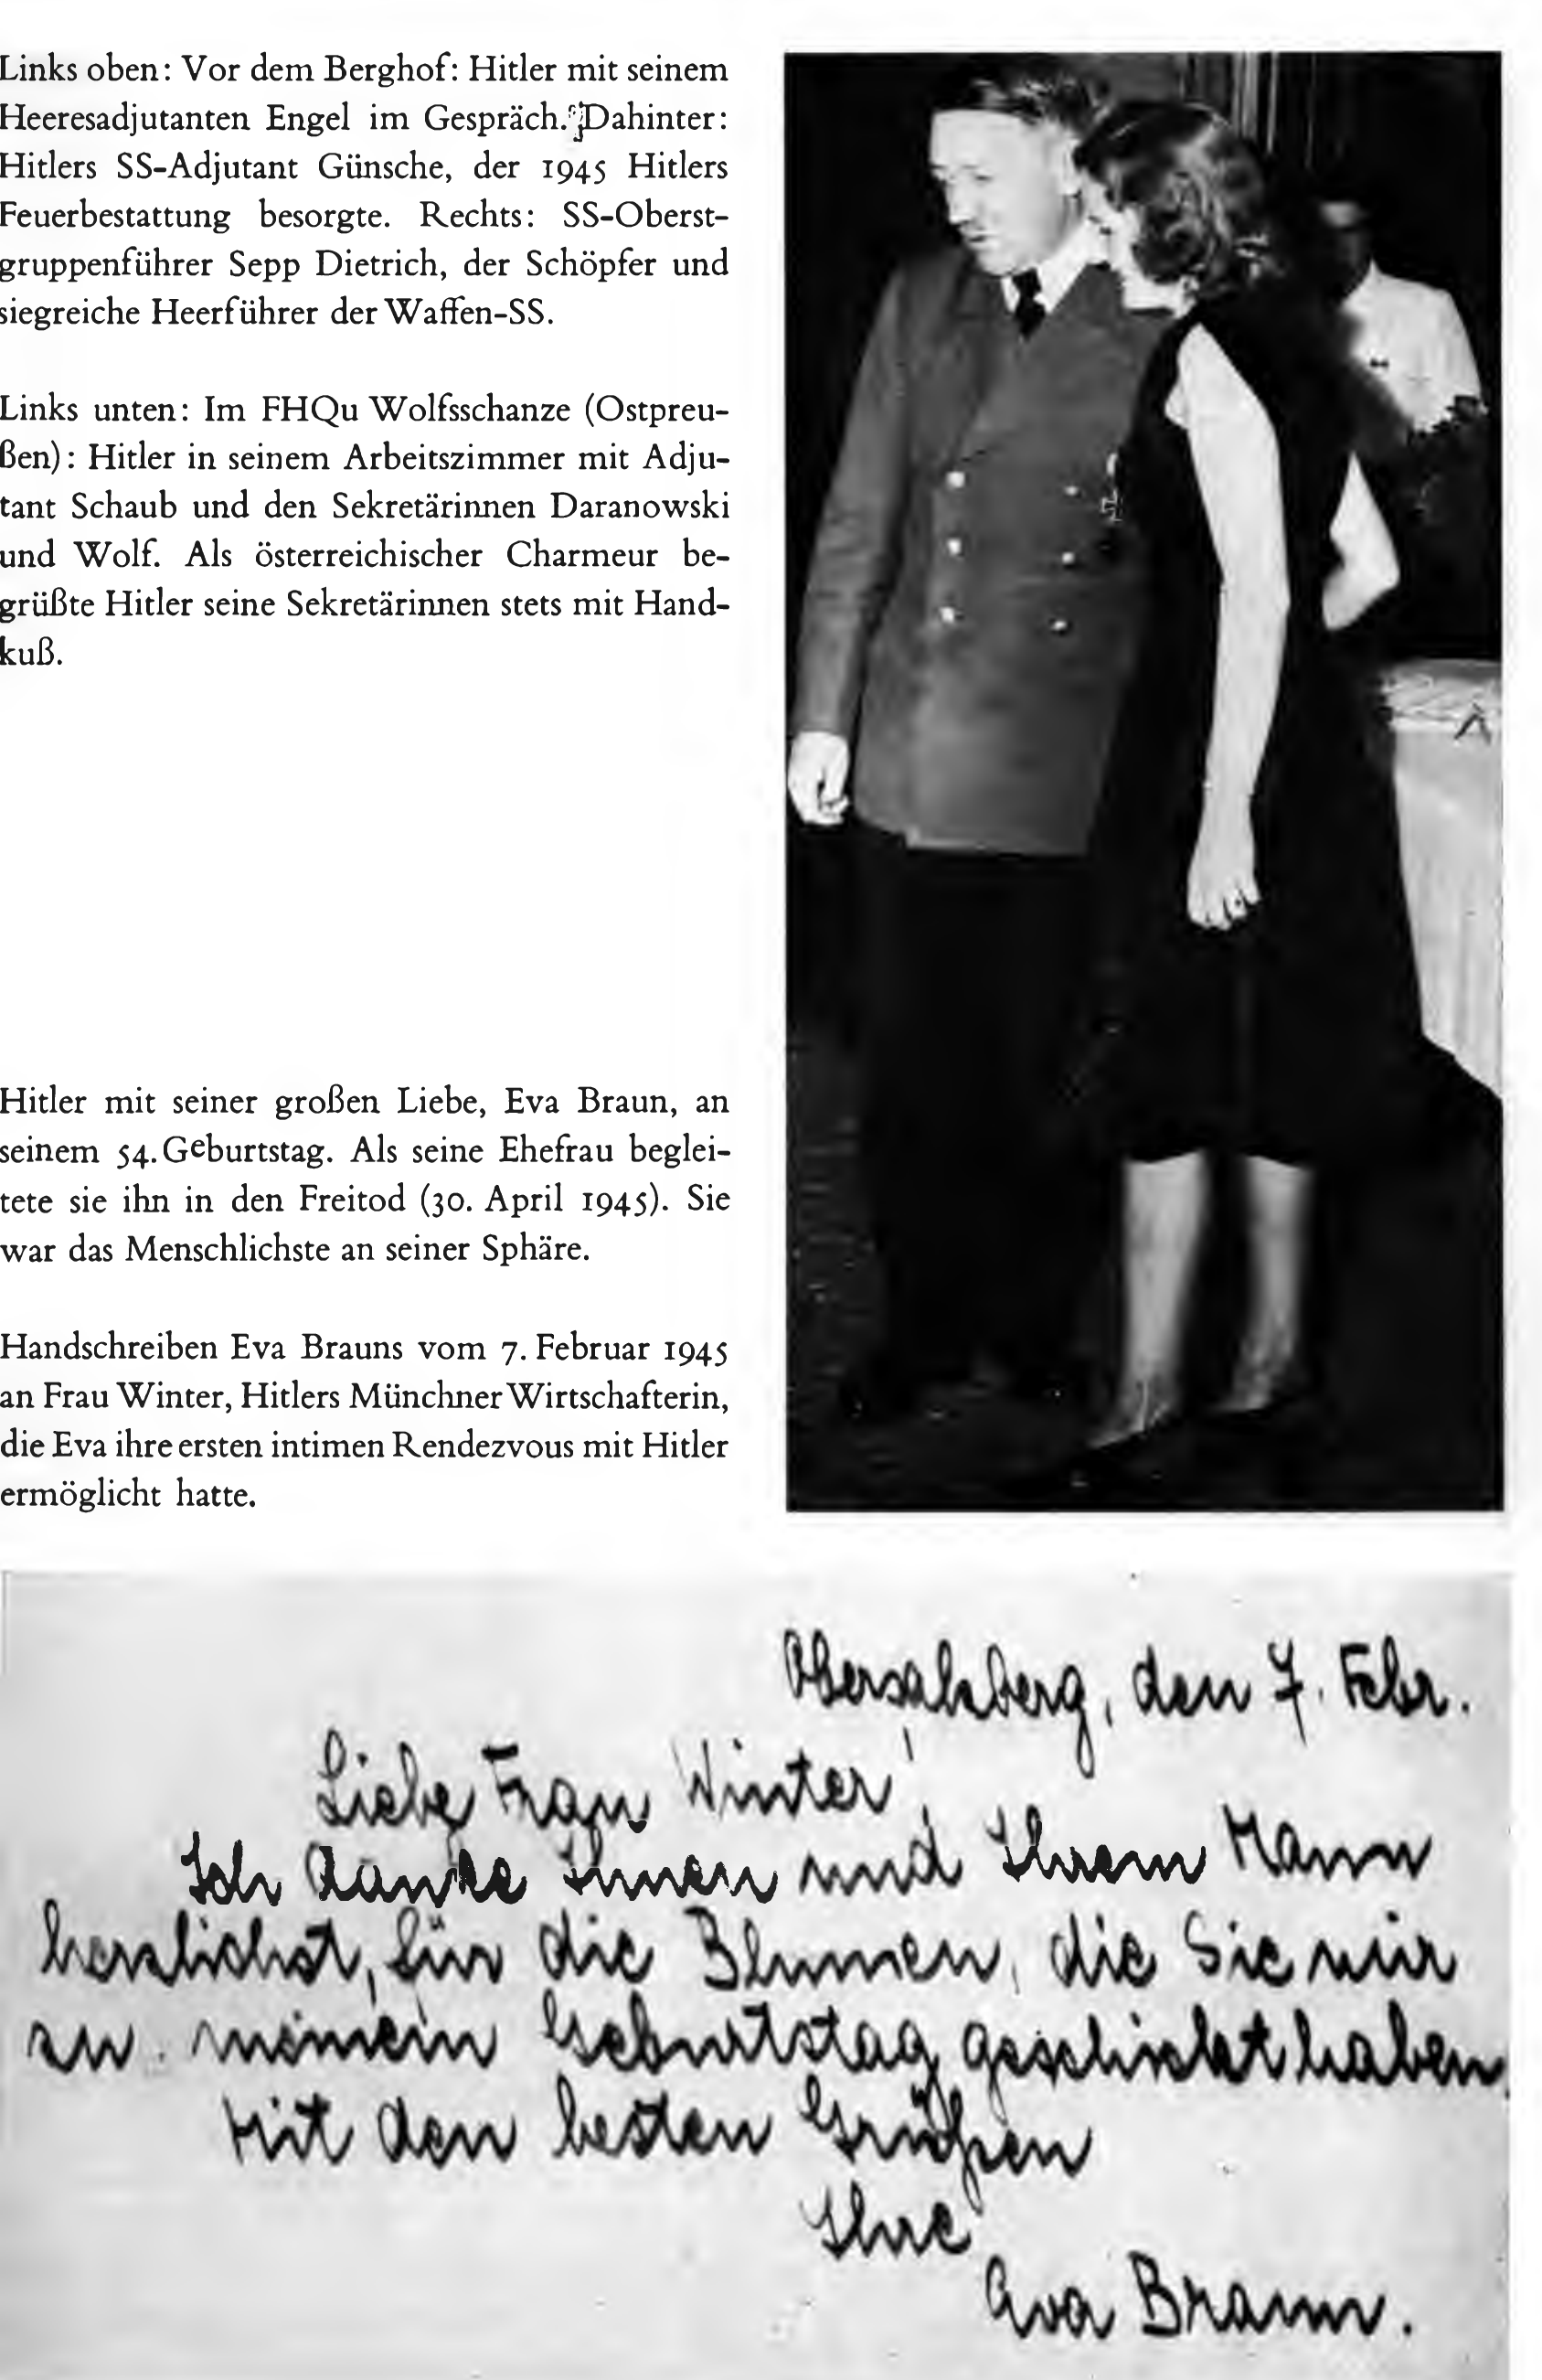 Links oben: Vor dem Berghof: Hitler mit seinem
Heeresadjutanten Engel im Gespräch. Dahinter:
Hitlers SS-Adjutant Günsche, der 1945 Hitlers
Feuerbestattung besorgte. Rechts: SS-Oberst-
gruppenführer Sepp Dietrich, der Schöpfer und
siegreiche Heerführer der Waffen-SS.
Links unten: Im FHQu Wolfsschanze (Ostpreu-
ßen): Hitler in seinem Arbeitszimmer mit Adju-
tant Schaub und den Sekretärinnen Daranowski
und Wolf. Als österreichischer Charmeur be-
grüßte Hitler seine Sekretärinnen stets mit Hand-
kuß.
Hitler mit seiner großen Liebe, Eva Braun, an
seinem 54. Geburtstag. Als seine Ehefrau beglei-
tete sie ihn in den Freitod (30. April 1945). Sie
war das Menschlichste an seiner Sphäre.
Handschreiben Eva Brauns vom 7. Februar 1945
an Frau Winter, Hitlers Münchner Wirtschafterin,
die Eva ihre ersten intimen Rendezvous mit Hitler
ermöglicht hatte.
Obersalzberg, den 7. Febr.
Liebe Frau Winter!
Ich danke Ihnen und Ihrem Mann
herzlichst, für die Blumen, die Sie mir
zu meinem Geburtstag geschickt haben.
Mit den besten Grüßen
Ihre
Eva Braun.